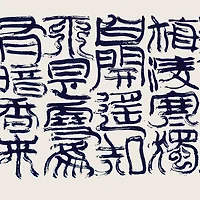 梅凌寒獨
自開遙知
不是雪為
有暗香來